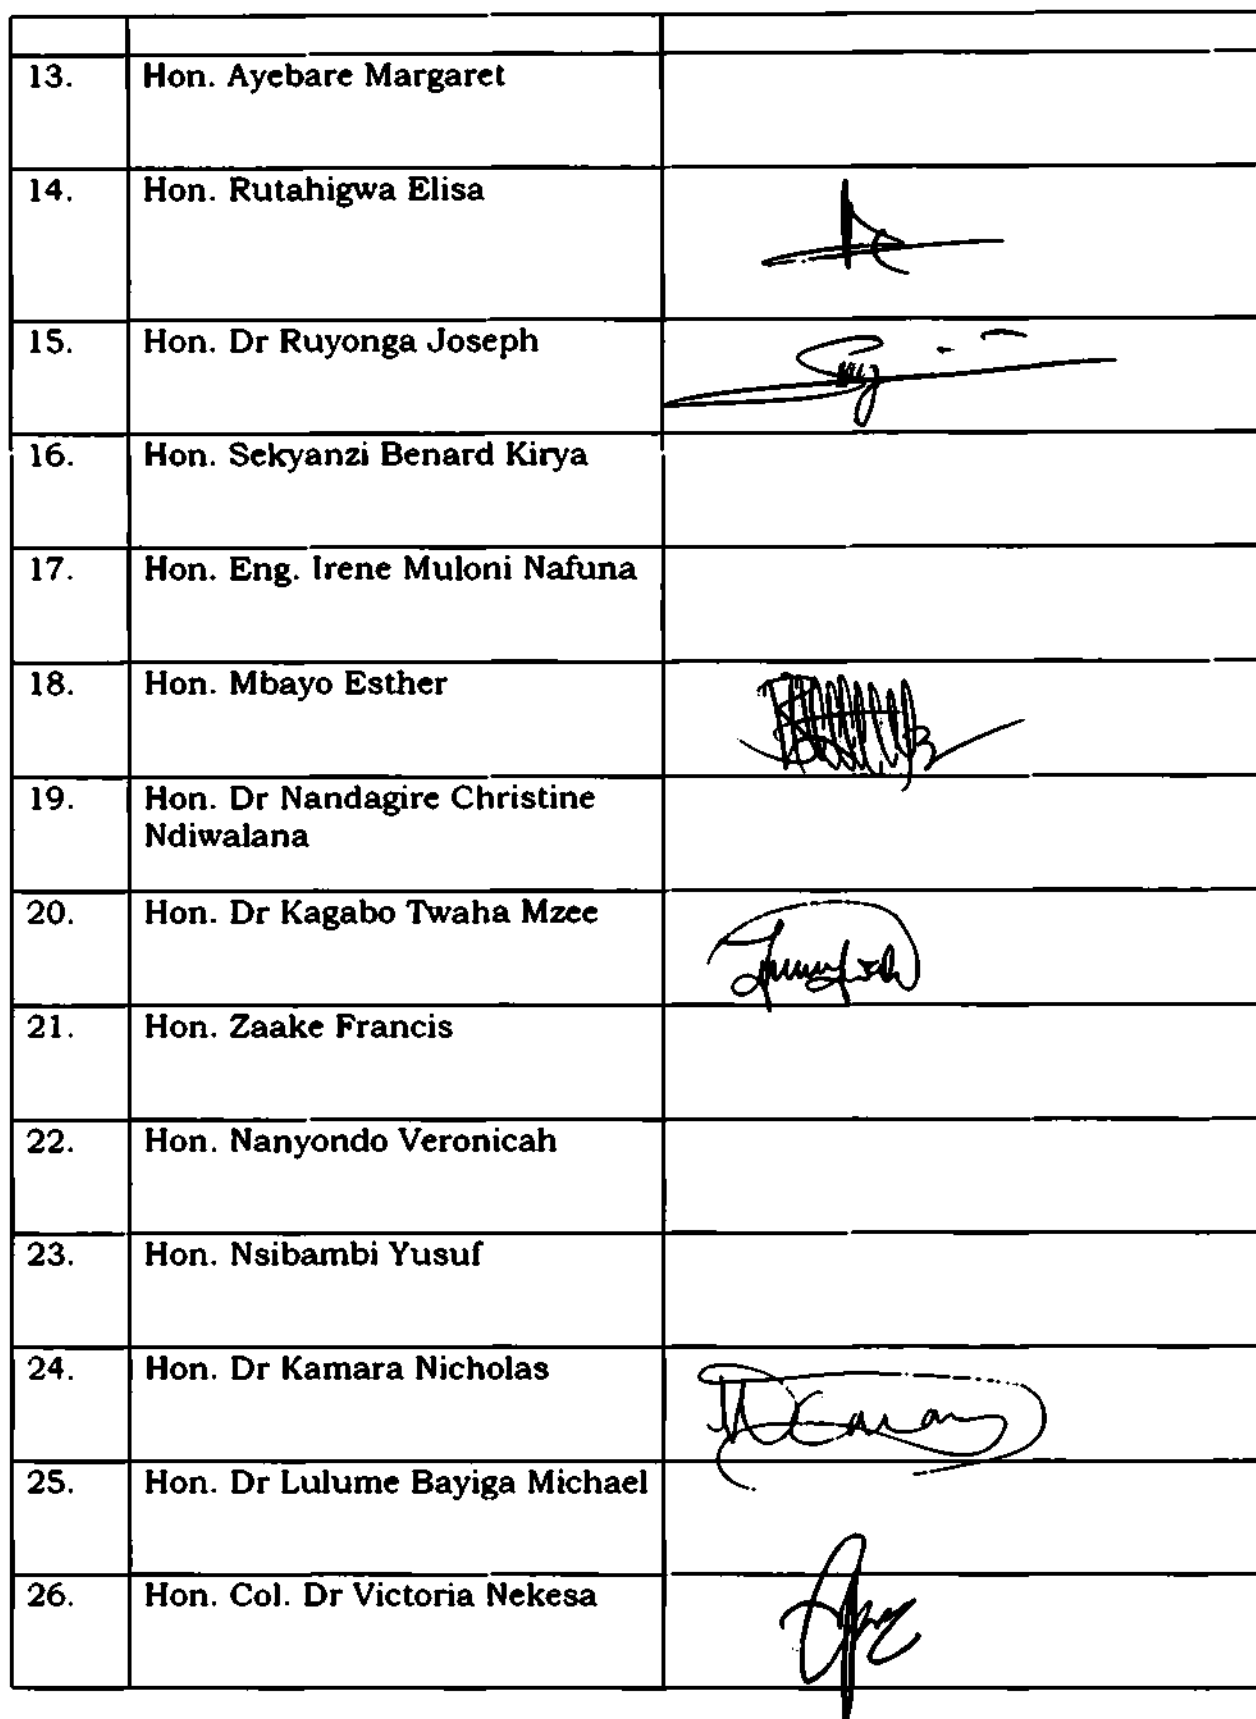 13. Hon. Ayebare Margaret
14. Hon. Rutahigwa Elisa
15. Hon. Dr Ruyonga Joseph
16. Hon. Sekyanzi Benard Kirya
17. Hon. Eng. Irene Muloni Nafuna
18. Hon. Mbayo Esther
19. Hon. Dr Nandagire Christine
Ndiwalana
20. Hon. Dr Kagabo Twaha Mzee
21. Hon. Zaake Francis
22. Hon. Nanyondo Veronicah
23. Hon. Nsibambi Yusuf
24. Hon. Dr Kamara Nicholas
25. Hon. Dr Lulume Bayiga Michael
26. Hon. Col. Dr Victoria Nekesa